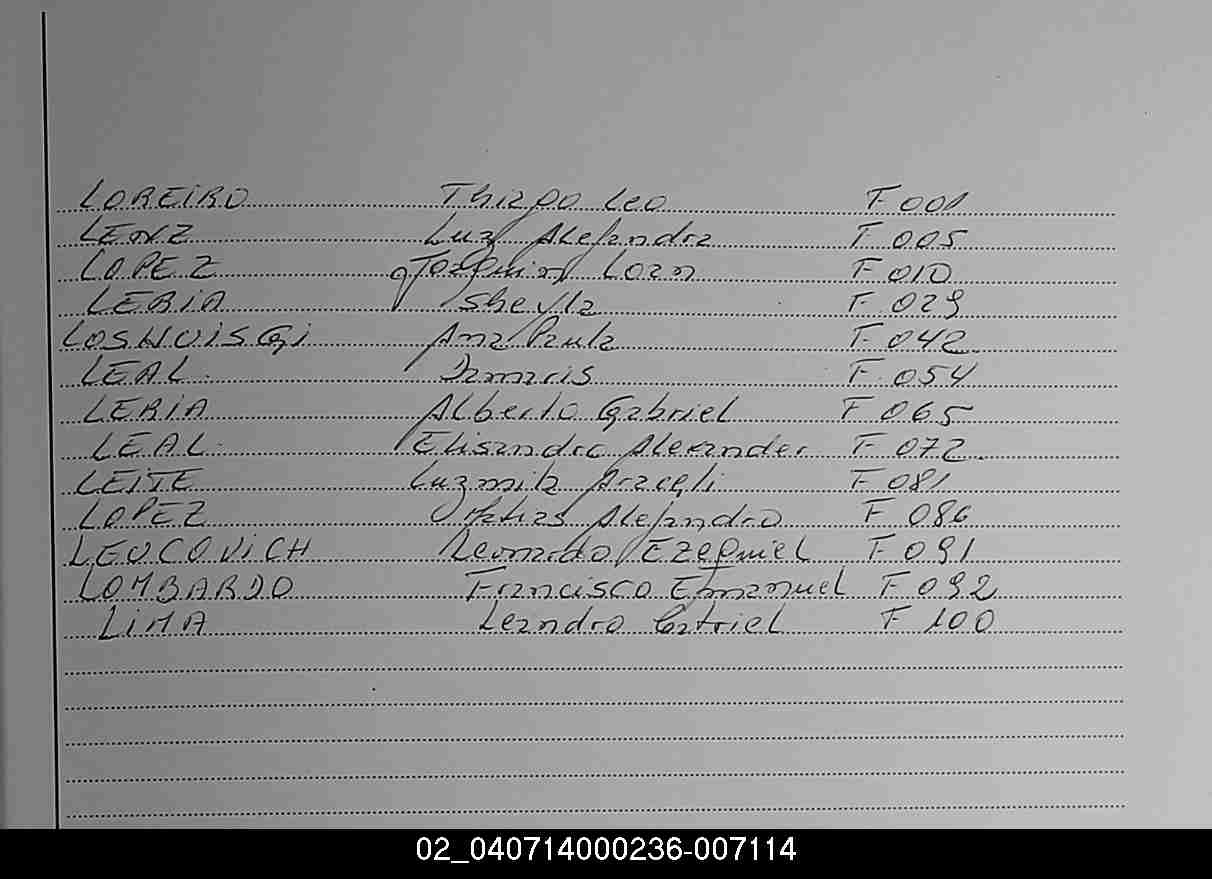 LOREIRO Thiago Leo F 001
LENZ Luz Alejandra F 005
LOPEZ Joaquin Loan F 010
LERIA Sheyla F 029
Ana Paula F 042
LEAL Damaris F 054
LERIA Alberto Gabriel F 065
LEAL Elisandro Alexander F 072
LEITE Luzmila Araceli F 081
LOPEZ Matias Alejandro F 086
LEUCOVICH Leonardo Ezequiel F 091
LOMBARDO Francisco Emanuel F 092
LIMA Leandro Catriel F 100
02_040714000236-007114